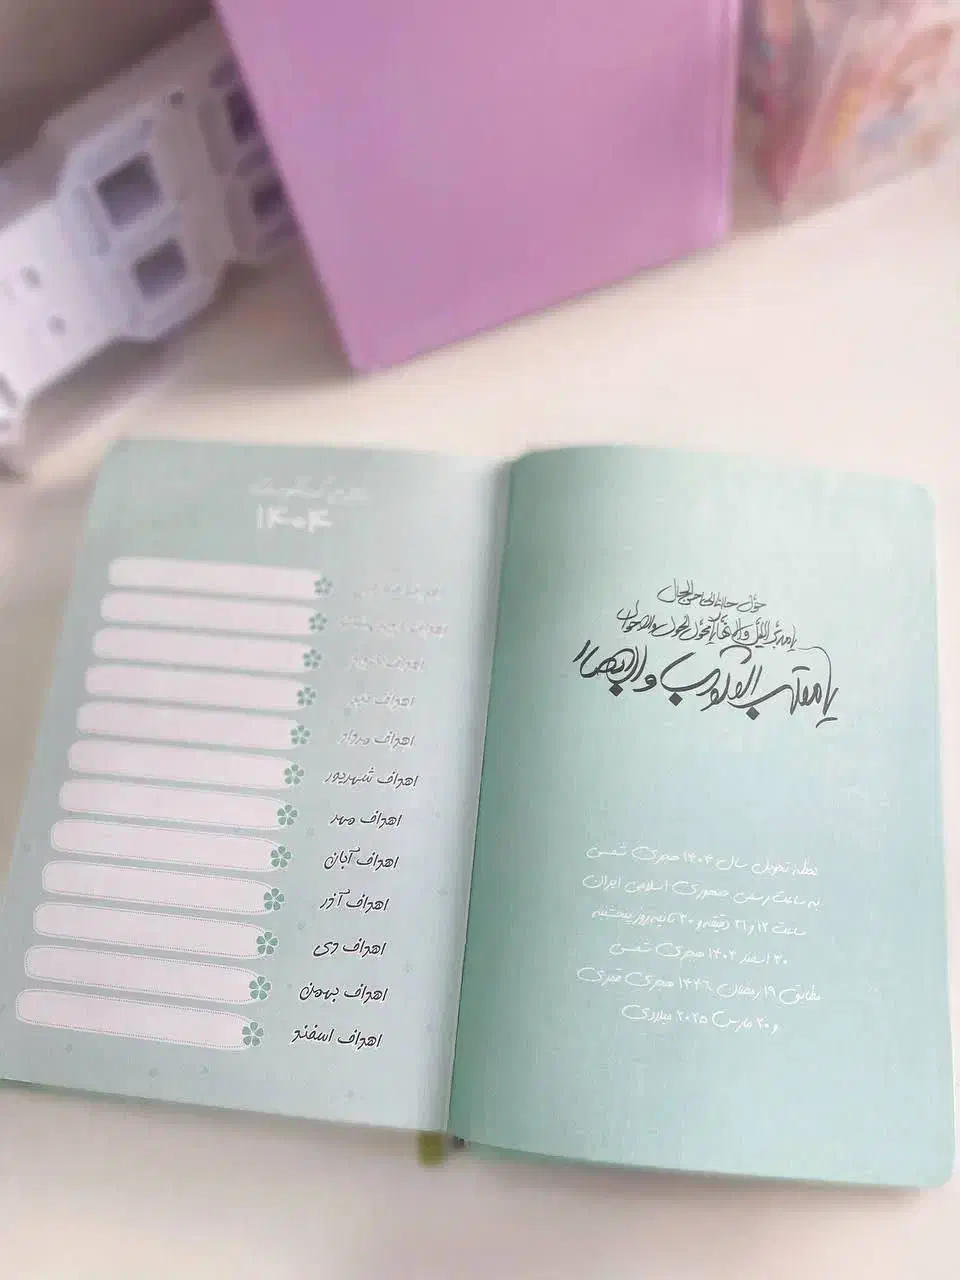 ۱۴۰۴
اهداف فروردین
اهداف اردیبهشت
اهداف خرداد
اهداف تیر
اهداف مرداد
اهداف شهریور
اهداف مهر
اهداف آبان
اهداف آذر
اهداف دی
اهداف بهمن
اهداف اسفند
حول حالنا الی احسن الحال
یا مدبر اللیل و النهار یا محول الحول و الاحوال
یا مقلب القلوب و الابصار
لحظه تحویل سال ۱۴۰۴ هجری شمسی
به ساعت رسمی جمهوری اسلامی ایران
ساعت ۱۲ و ۳۱ دقیقه و ۳۰ ثانیه روز پنجشنبه
۳۰ اسفند ۱۴۰۳ هجری شمسی
مطابق ۱۹ رمضان ۱۴۴۶ هجری قمری
و ۲۰ مارس ۲۰۲۵ میلادی